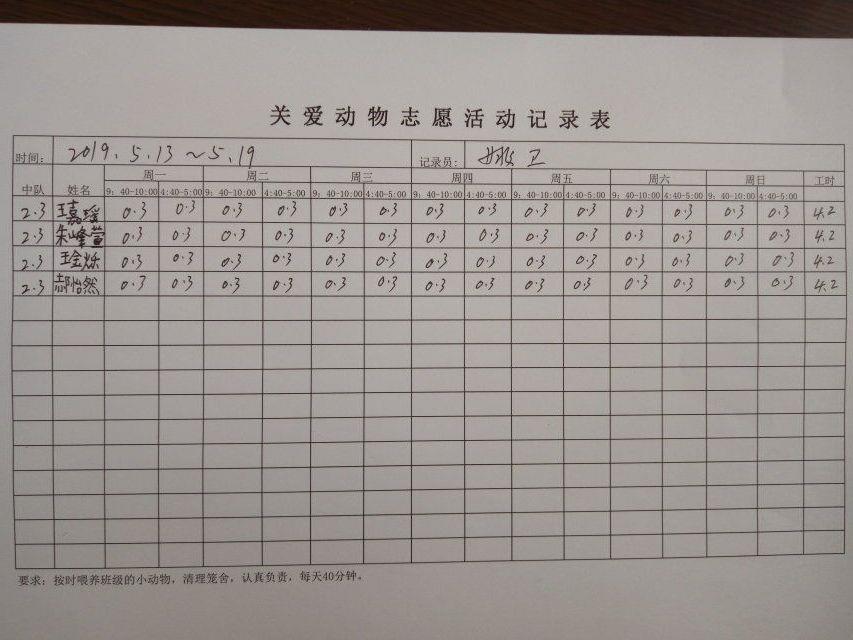 关爱动物志愿活动记录表
时间: 2019.5.13～5.19 记录员: 姚卫
周一 周二 周三 周四 周五 周六 周日
中队 姓名 9:40-10:00 4:40-5:00 9:40-10:00 4:40-5:00 9:40-10:00 4:40-5:00 9:40-10:00 4:40-5:00 9:40-10:00 4:40-5:00 9:40-10:00 4:40-5:00 9:40-10:00 4:40-5:00 工时
2.3 王嘉瑶 0.3 0.3 0.3 0.3 0.3 0.3 0.3 0.3 0.3 0.3 0.3 0.3 0.3 0.3 4.2
2.3 朱峰萱 0.3 0.3 0.3 0.3 0.3 0.3 0.3 0.3 0.3 0.3 0.3 0.3 0.3 0.3 4.2
2.3 王金烁 0.3 0.3 0.3 0.3 0.3 0.3 0.3 0.3 0.3 0.3 0.3 0.3 0.3 0.3 4.2
2.3 郝怡然 0.3 0.3 0.3 0.3 0.3 0.3 0.3 0.3 0.3 0.3 0.3 0.3 0.3 0.3 4.2
要求：按时喂养班级的小动物，清理笼舍，认真负责，每天40分钟。